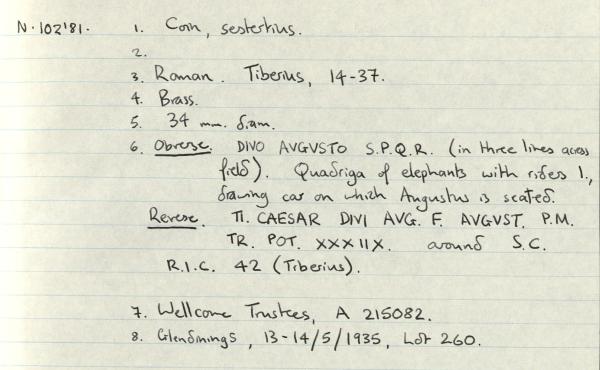 N.102'81. 1. Coin, sestertius.
2.
3. Roman. Tiberius, 14-37.
4. Brass.
5. 34 mm. diam.
6. Obverse. DIVO AVGVSTO S.P.Q.R. (in three lines across
field). Quadriga of elephants with riders l.,
drawing car on which Augustus is seated.
Reverse. TI. CAESAR DIVI AVG. F. AVGVST. P.M.
TR. POT. XXXIIX. around S.C.
R.I.C. 42 (Tiberius).
7. Wellcome Trustees, A 215082.
8. Glendinings, 13-14/5/1935, Lot 260.